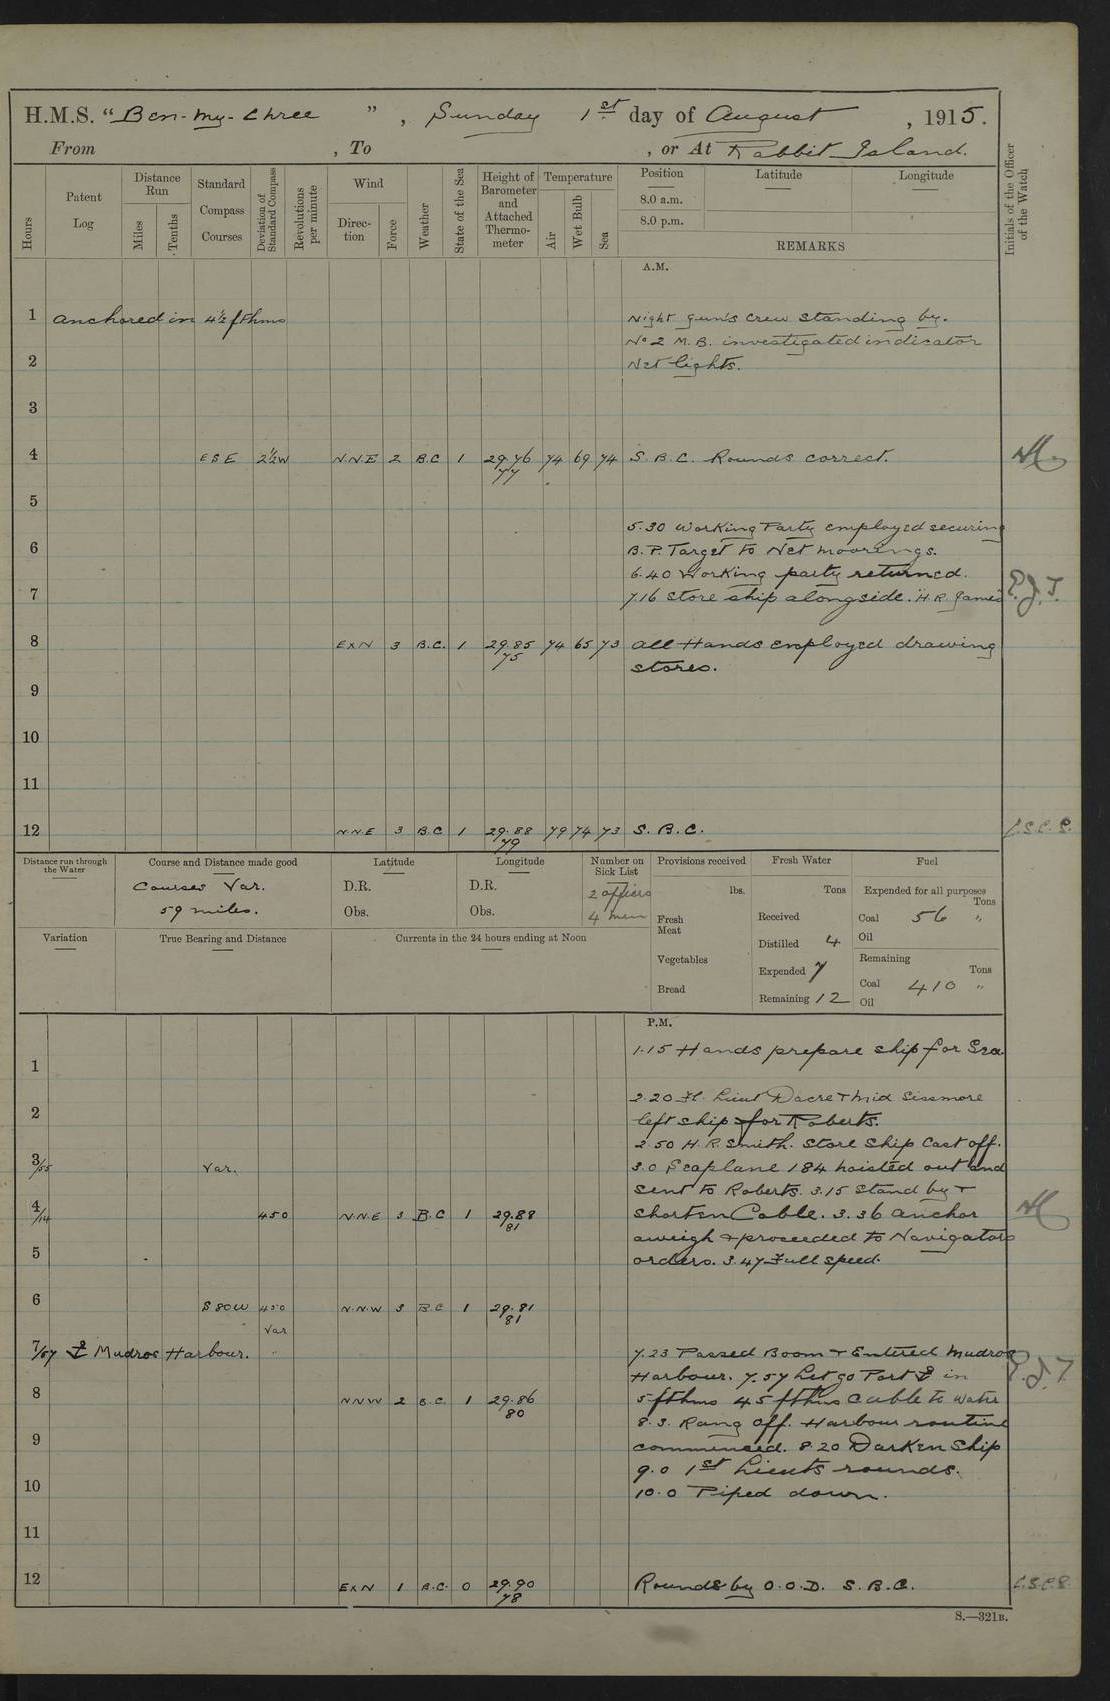 H.M.S. "Ben-my-Chree", Sunday 1st day of August, 1915.
From , To , or At Rabbit Island.
Hours
Patent Log
Distance Run
Miles
Tenths
Standard Compass Courses
Deviation of Standard Compass
Revolutions per minute
Wind
Direction
Force
Weather
State of the Sea
Height of Barometer and Attached Thermometer
Temperature
Air
Wet Bulb
Sea
Position
8.0 a.m.
8.0 p.m.
Latitude
Longitude
REMARKS
Initials of the Officer of the Watch
A.M.
1 Anchored in 4½ fthms Night gun's crew standing by.
No 2 M.B. investigated indicator
2 Net lights.
3
4 ESE 2½W N.N.E 2 B.C 1 29.76 74 69 74 S.B.C. Rounds correct.
77
5
5.30 Working Party employed securing
6 B.P. Target to Net moorings.
6.40 Working party returned.
7 7.16 Store ship alongside. "H.R. James" E.J.T.
8 ExN 3 B.C. 1 29.85 74 65 73 All Hands employed drawing
75 stores.
9
10
11
12 N.N.E 3 B.C 1 29.88 79 74 73 S.B.C.
79
Distance run through the Water
Course and Distance made good
Courses Var.
59 miles.
Latitude
D.R.
Obs.
Longitude
D.R.
Obs.
Number on Sick List
2 officers
4 men
Provisions received
lbs.
Fresh Meat
Vegetables
Bread
Fresh Water
Tons
Received
Distilled 4
Expended 7
Remaining 12
Fuel
Expended for all purposes
Tons
Coal 56 "
Oil
Remaining
Tons
Coal 410 "
Oil
Variation
True Bearing and Distance
Currents in the 24 hours ending at Noon
P.M.
1.15 Hands prepare ship for Sea
1
2.20 Fl. Lieut Dacre + Mid Sissmore
2 left ship for Roberts.
2.50 H.R. Smith. Store Ship Cast off.
3/55 Var. 3.0 Seaplane 184 hoisted out and
sent to Roberts. 3.15 Stand by +
4/14 450 N.N.E 3 B.C 1 29.88 shorten Cable. 3.36 anchor
81 aweigh + proceeded to Navigators
5 orders. 3.47 Full speed.
6 S80W 450 N.N.W 3 B.C 1 29.81
Var 81
7/57 ⚓ Mudros Harbour. " 7.23 Passed Boom + Entered Mudros
Harbour. 7.57 Let go Port ⚓ in E.J.T.
8 NNW 2 B.C. 1 29.86 5 fthms 45 fthms Cable to water
80 8.3. Rang off. Harbour routine
9 commenced. 8.20 Darken Ship
9.0 1st Lieuts rounds.
10 10.0 Piped down.
11
12 ExN 1 B.C. 0 29.90 Rounds by O.O.D. S.B.C.
78
S.—321B.